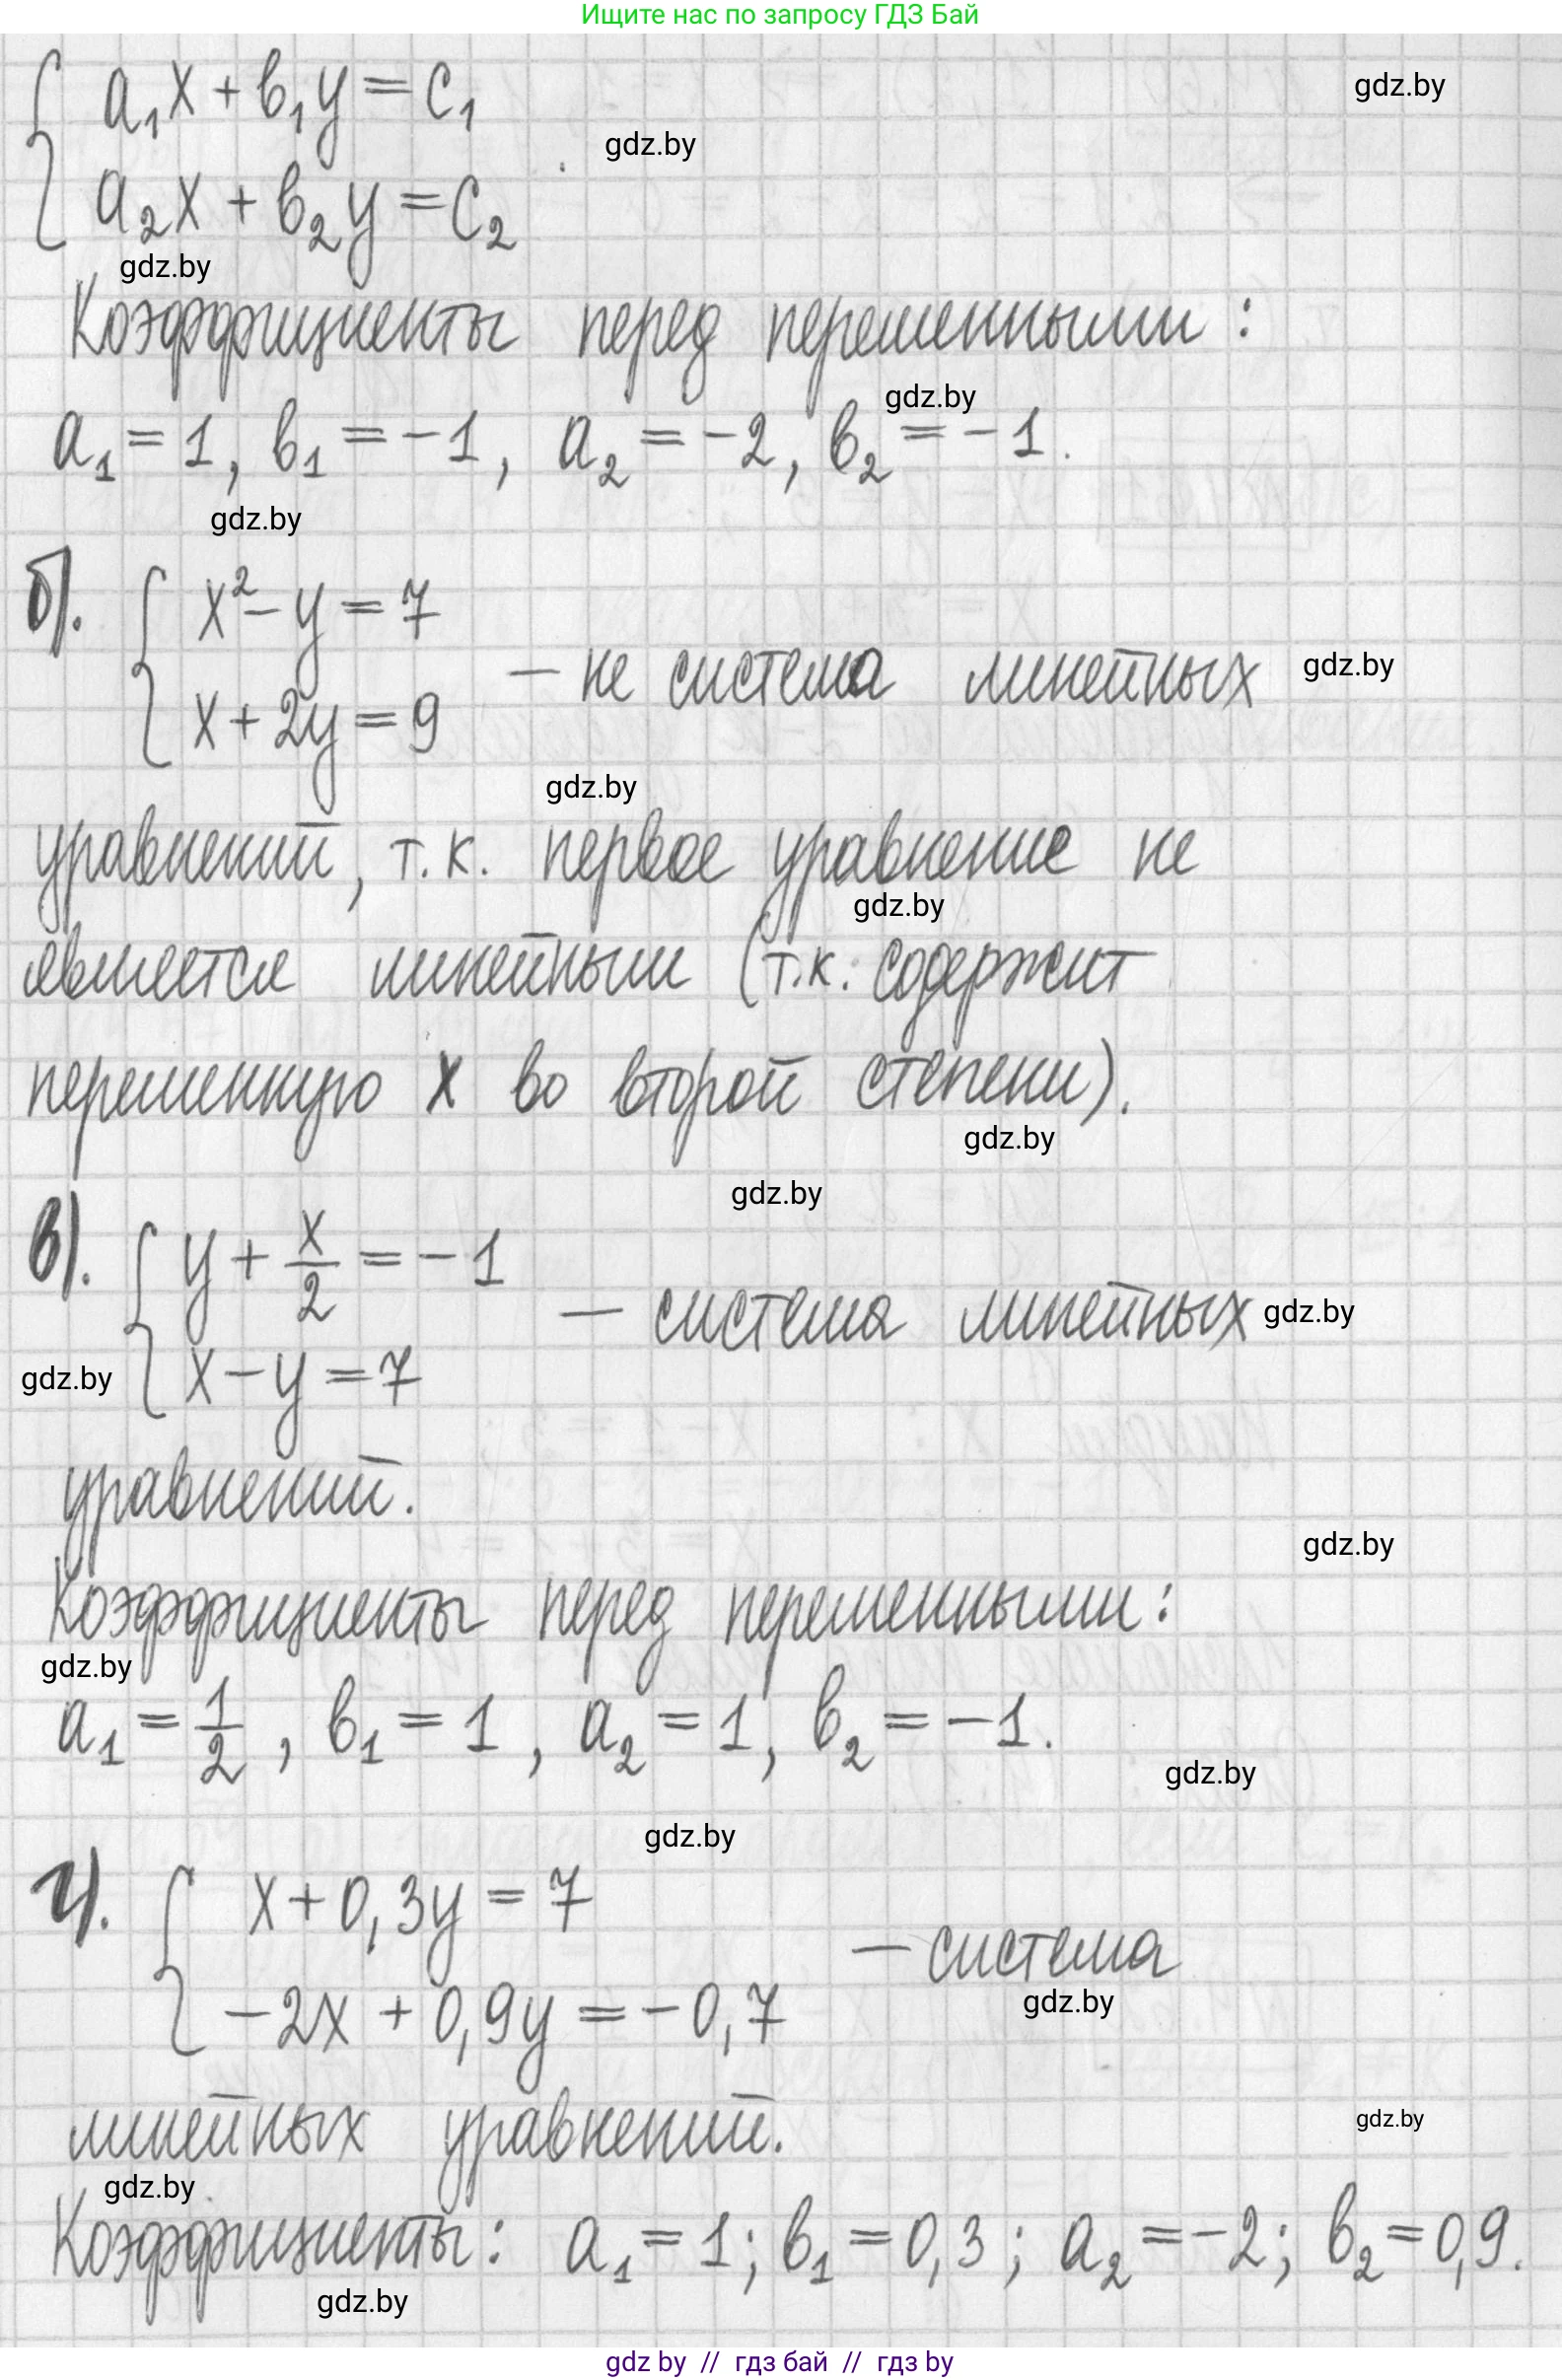 Ищите нас по запросу ГДЗ Бай
a₁x + в₁y = c₁
gdz.by
gdz.by
a₂x + в₂y = c₂
.
gdz.by
Коэффициенты перед переменными :
gdz.by
a₁ = 1, в₁ = -1, a₂ = -2, в₂ = -1.
gdz.by
б). { x² - y = 7
x + 2y = 9
— не система линейных
gdz.by
gdz.by
уравнений, т.к. первое уравнение не
gdz.by
является линейным (т.к. содержит
переменную x во второй степени).
gdz.by
gdz.by
в). { y + x/2 = -1
x - y = 7
— система линейных
gdz.by
gdz.by
уравнений.
gdz.by
Коэффициенты перед переменными:
gdz.by
a₁ = 1/2, в₁ = 1, a₂ = 1, в₂ = -1.
gdz.by
gdz.by
г). { x + 0,3y = 7
-2x + 0,9y = -0,7
— система
gdz.by
линейных уравнений.
gdz.by
gdz.by
Коэффициенты: a₁ = 1; в₁ = 0,3; a₂ = -2; в₂ = 0,9.
gdz.by
gdz by // гдз бай // гдз by